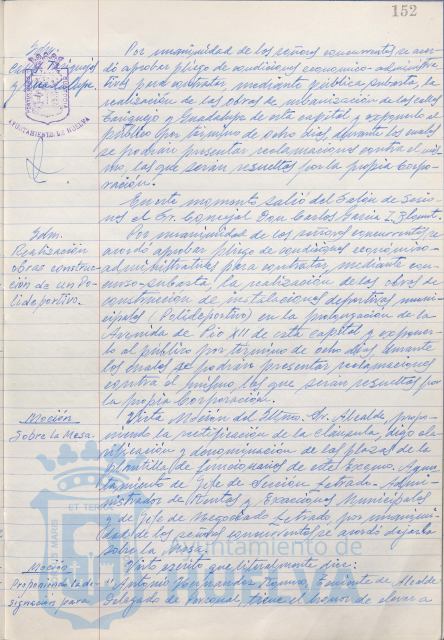 152
Idm.
calles Tariquejo
y Guadalupe.
AYUNTAMIENTO DE HUELVA
Por unanimidad de los señores concurrentes se acor-
dó aprobar pliego de condiciones económico-administra-
tivas para contratar, mediante pública subasta, la
realización de las obras de urbanización de las calles
Tariquejo y Guadalupe de esta capital y exponerlo
al público por término de ocho días, durante los cuales
se podrán presentar reclamaciones contra el mis-
mo, las que serán resueltas por la propia Corpo-
ración.
En este momento salió del Salón de Sesio-
nes el Sr. Concejal Don Carlos García
Idm.
Realización
obras construc-
ción de un Po-
lideportivo.
Por unanimidad de los señores concurrentes se
acordó aprobar pliego de condiciones económico-
administrativas para contratar, mediante con-
curso-subasta, la realización de las obras de
construcción de instalaciones deportivas muni-
cipales (Polideportivo) en la prolongación de la
Avenida de Pio XII de esta capital y exponer-
lo al público por término de ocho días, durante
los cuales se podrán presentar reclamaciones
contra el mismo, las que serán resueltas por
la propia Corporación.
Moción
Sobre la Mesa.
Vista Moción del Iltmo. Sr. Alcalde, propo-
niendo la rectificación de la cláusula, digo cla-
sificación y denominación de las plazas de la
plantilla de funcionarios de este Excmo. Ayun-
tamiento de Jefe de Sección Letrado-Admi-
nistrador de Rentas y Exacciones Municipales
y de Jefe de Negociado Letrado, por unanimi-
dad de los señores concurrentes se acordó dejarla
sobre la Mesa.
Moción
Proponiendo la de-
signación para
Visto escrito que literalmente dice:
"Antonio Hernández Romero, Teniente de Alcalde
Delegado de Personal, tiene el honor de elevar a
Ayuntamiento de
HUELVA